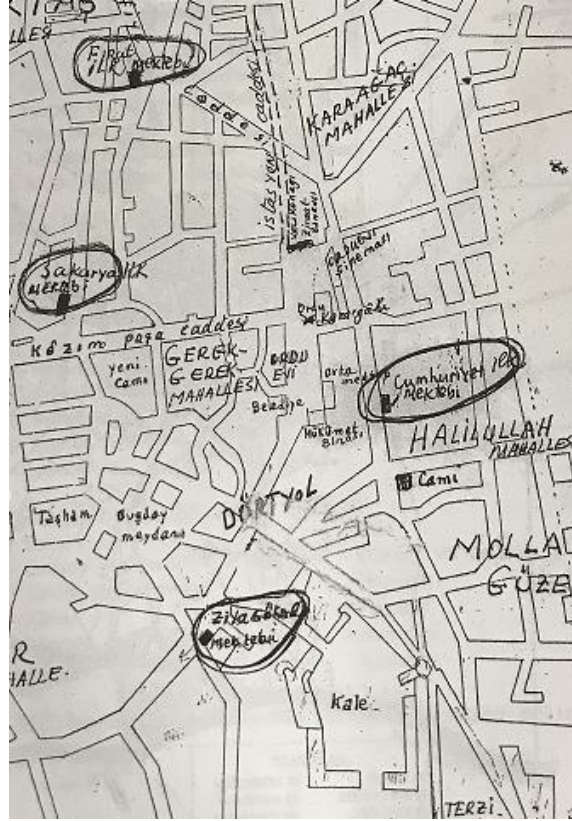 LLES
Fırat
İLK Mektebi
caddesi
istasyon caddesi
KARAAĞAÇ
MAHALLESİ
Ziraat
Sineması
Sakarya İlk
MEKTEBİ
Ordu
Karargâhı
Kâzım paşa caddesi
yeni
Cami
GEREK-
GEREK
MAHALLESİ
ORDU
EVİ
orta
Belediye
Hükümet
Binası
Cumhuriyet İlk
Mektebi
HALİLULLAH
MAHALLES
Cami
Taşhan
Buğday
meydanı
DÖRTYOL
MOLLA
GÜZE
Ziya Gökalp
mektebi
R
HALLE.
Kale
TERZİ